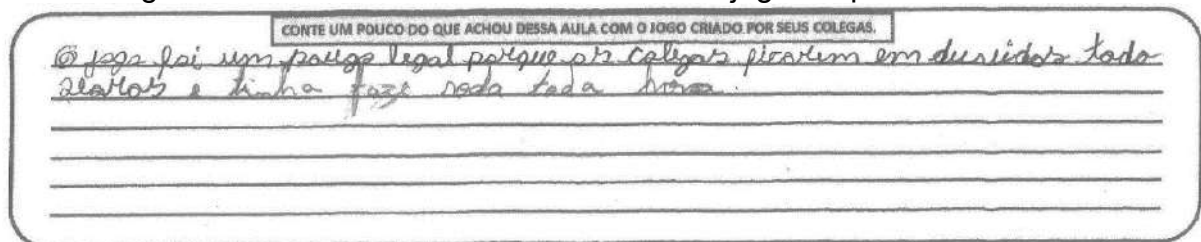 CONTE UM POUCO DO QUE ACHOU DESSA AULA COM O JOGO CRIADO POR SEUS COLEGAS.
O jogo foi um pouqo legal porque os colegas ficarem em duvidos todo
e tinha faze roda toda hora.